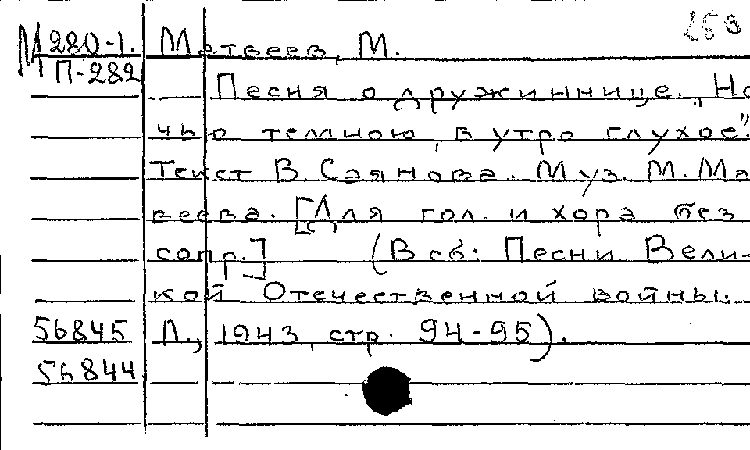 253
М 280-1. Матвеев, М.
П-282
Песня о дружиннице. „Но
чью темною, в утро глухое"
Текст В. Саянова. Муз. М. Ма
веева. [Для гол. и хора без
сопр.] (В сб: Песни Вели-
кой Отечественной войны.
56845 Л., 1943, стр. 94-95).
56844